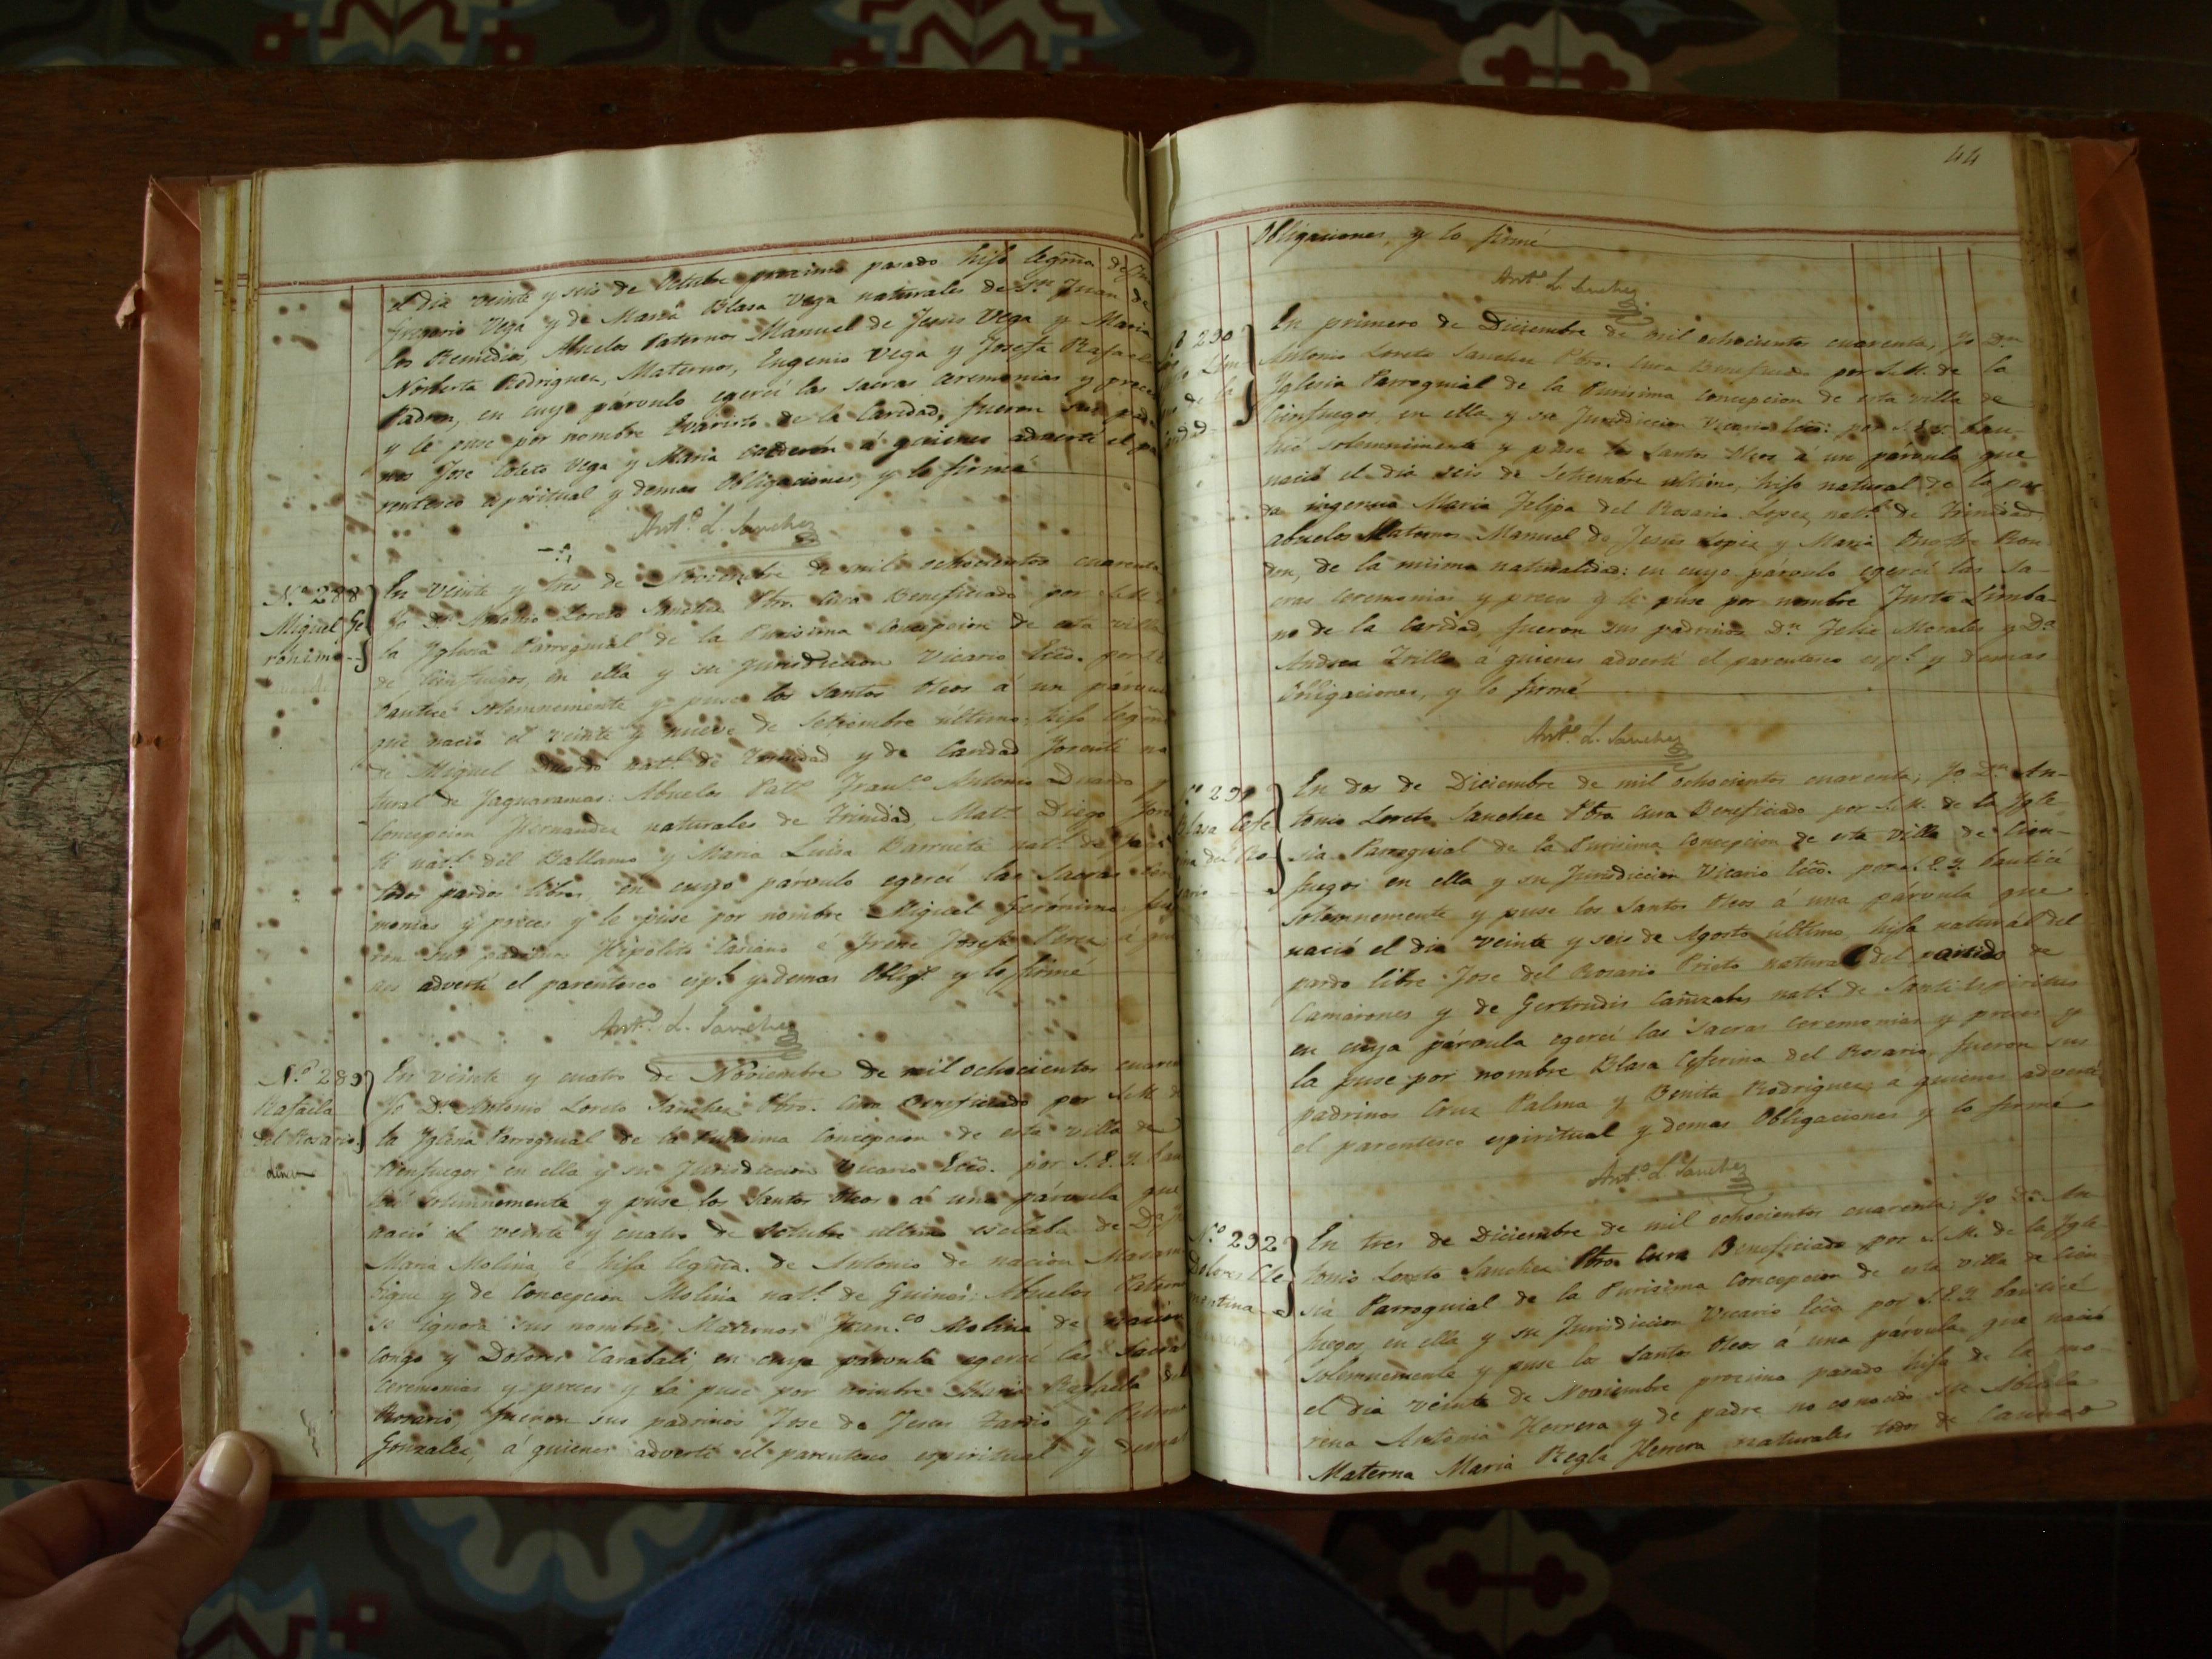 el dia veinte y seis de Octubre procsimo pasado hijo legmo de
Gregorio Vega y de Maria Blasa Vega naturales de Sn Juan de
los Remedios, Abuelos Paternos Manuel de Jesus Vega y Maria
Norberta Rodriguez, Maternos, Eugenio Vega y Josefa Rafaela
Padron, en cuyo párvulo egercí las sacras ceremonias y preces
y le puse por nombre Evaristo de la Caridad, fueron sus padri
nos Jose Loreto Vega y Maria Calderon á quienes advertí el pa
rentesco espiritual y demas Obligaciones, y lo firmé
Anto. L. Sanchez
No. 288
Miguel Ge
ronimo
En veinte y tres de Noviembre de mil ochocientos cuarenta
Yo Dn Antonio Loreto Sanchez Pbro. Cura Beneficiado por S.M. de
la Yglesia Parroquial de la Purisima Concepcion de esta villa
de Cienfuegos, en ella y su Jurisdiccion Vicario Ecco. por S.E.
bauticé solemnemente y puse los Santos Oleos á un párvulo
que nació el veinte y nueve de Setiembre último, hijo legmo
de Miguel Duardo natl. de Trinidad y de Caridad na
tural de Yaguaramas: Abuelos Pats. Franco. Antonio Duardo y
Concepcion Hernandez naturales de Trinidad, Mats. Diego
natl. del Ballamo y Maria Luisa Barrueta natl. de
todos pardos libres, en cuyo párvulo egercí las sacras cere
monias y preces y le puse por nombre Miguel Gerónimo, fue
ron sus padrinos Hipolito é Yrene Josefa Perez á quie
nes advertí el parentesco espl. y demas Obligs. y lo firmé
Anto. L. Sanchez
No. 289
Rafaela
del Rosario
En veinte y cuatro de Noviembre de mil ochocientos cuaren
Yo Dn Antonio Loreto Sanchez Pbro. Cura Beneficiado por S.M. de
la Yglesia Parroquial de la Purisima Concepcion de esta villa de
Cienfuegos en ella y su Jurisdiccion Vicario Ecco. por S.E.Y. bau
ticé solemnemente y puse los Santos Oleos á una párvula que
nació el veinte y cuatro de Octubre ultimo esclaba de Da
Maria Molina, é hija legma. de Antonio de nacion Masam
bique y de Concepcion Molina natl. de Guines: Abuelos Paternos
se ignora sus nombres, Maternos Franco. Molina de nacion
Congo y Dolores Carabalí, en cuya párvula egercí las Sacras
Ceremonias y preces y la puse por nombre Maria Rafaela del
Rosario, fueron sus padrinos Jose de Jesus y
Gonzalez, á quienes advertí el parentesco espiritual y demas
44
Obligaciones, y lo firmé
Anto. L. Sanchez
290
En primero de Diciembre de mil ochocientos cuarenta, Yo Dn
Antonio Loreto Sanchez Pbro. Cura Beneficiado por S.M. de la
Yglesia Parroquial de la Purisima Concepcion de esta villa de
Cienfuegos, en ella y su Jurisdiccion Vicario Ecco. por S.E.Y. bau-
ticé solemnemente y puse los Santos Oleos á un párvulo que
nació el dia seis de Setiembre ultimo, hijo natural de la par
da ingenua Maria Felipa del Rosario Lopez, natl. de Trinidad,
abuelos Maternos Manuel de Jesus Lopez y Maria
de la misma naturalidad: en cuyo párvulo egercí las sa-
cras ceremonias y preces y le puse por nombre Justo Limba-
no de la Caridad, fueron sus padrinos Dn Felix Morales y Da
Andrea Trillo á quienes advertí el parentesco espl. y demas
Obligaciones, y lo firmé
Anto. L. Sanchez
291
Blasa Cefe
rina del Ro
sario
En dos de Diciembre de mil ochocientos cuarenta, Yo Dn An-
tonio Loreto Sanchez Pbro Cura Beneficiado por S.M. de la Ygle
sia Parroquial de la Purisima Concepcion de esta villa de Cien-
fuegos en ella y su Jurisdiccion Vicario Ecco. por S.E.Y. bauticé
solemnemente y puse los Santos Oleos á una párvula que
nació el dia veinte y seis de Agosto último, hija natural del
pardo libre Jose del Rosario Prieto natural del partido de
Camarones y de Gertrudis Cañizales natl. de Santi Espiritus
en cuya párvula egercí las Sacras ceremonias y preces y
la puse por nombre Blasa Ceferina del Rosario, fueron sus
padrinos Cruz Palma y Benita Rodriguez á quienes advertí
el parentesco espiritual y demas Obligaciones y lo firmé
Anto. L. Sanchez
No. 292
Dolores Cle
mentina
En tres de Diciembre de mil ochocientos cuarenta; Yo Dn An
tonio Loreto Sanchez Pbro Cura Beneficiado por S.M. de la Ygle
sia Parroquial de la Purisima Concepcion de esta villa de Cien
fuegos, en ella y su Jurisdiccion Vicario Ecco por S.E.Y. bauticé
solemnemente y puse los Santos Oleos á una párvula que nació
el dia veinte de Noviembre procsimo pasado hija de la mo
rena Antonia Herrera y de padre no conocido su Abuela
Materna Maria Regla Herrera naturales todos de